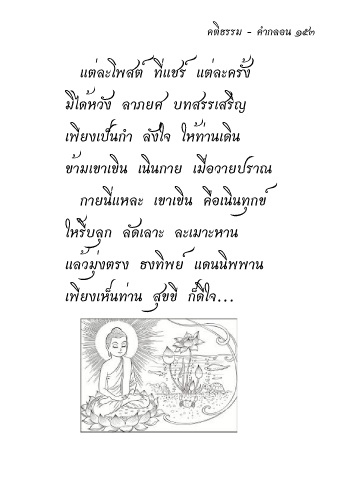 คติธรรม - คำกลอน ๑๕๓
แต่ละโพสต์ ที่แชร์ แต่ละครั้ง
มิได้หวัง ลาภยศ บทสรรเสริญ
เพียงเป็นกำ ลังใจ ให้ท่านเดิน
ข้ามเขาเขิน เนินกาย เมื่อวายปราณ
กายนี้แหละ เขาเขิน คือเนินทุกข์
ให้รีบลุก ลัดเลาะ ละเมาะหาน
แล้วมุ่งตรง ธงทิพย์ แดนนิพพาน
เพียงเห็นท่าน สุขขี ก็ดีใจ...